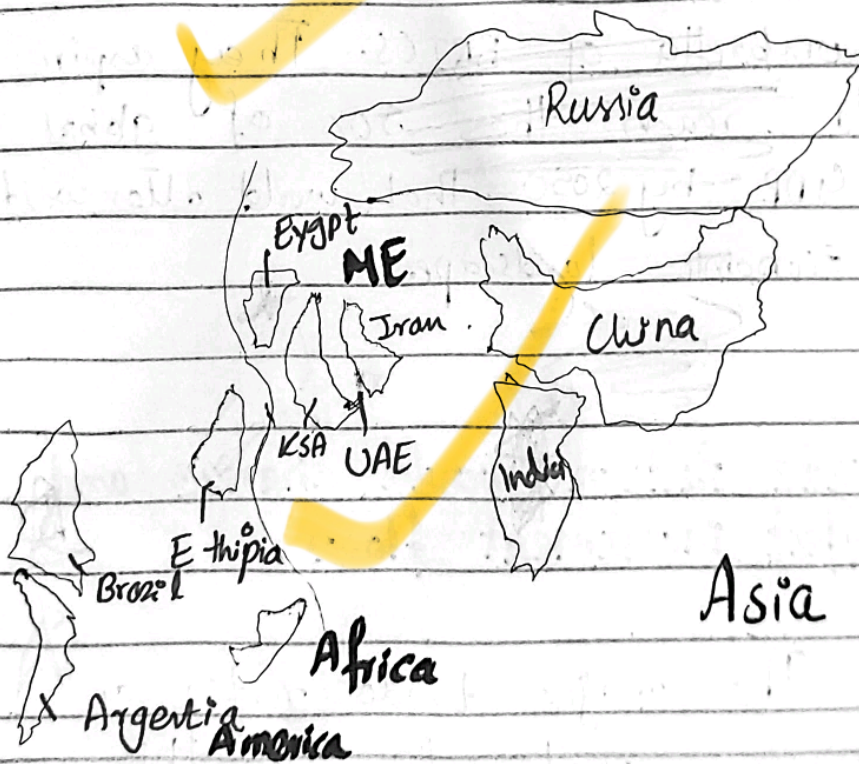 Russia
Eygpt
ME
Iran
China
KSA
UAE
India
E thiopia
Brazil
Asia
Africa
Argertia
America